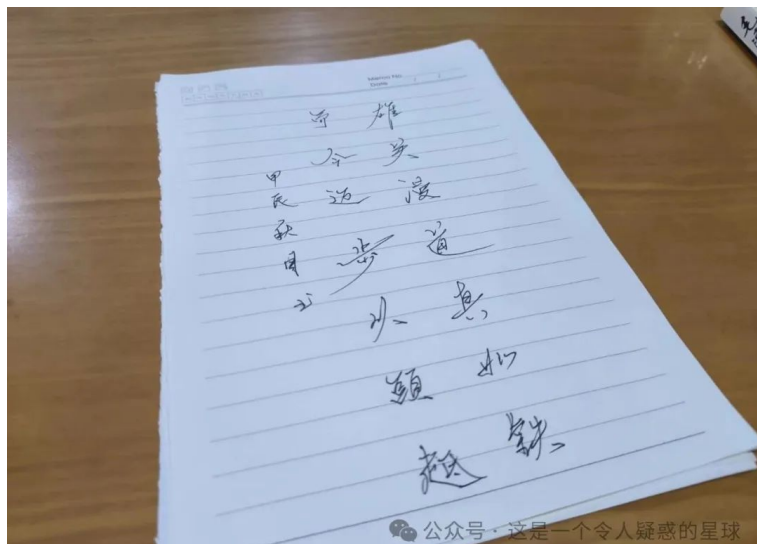 Memo No.
Date
雄关漫道真如鉄
而今迈步从頭越
甲辰秋月书
公众号 · 这是一个令人疑惑的星球